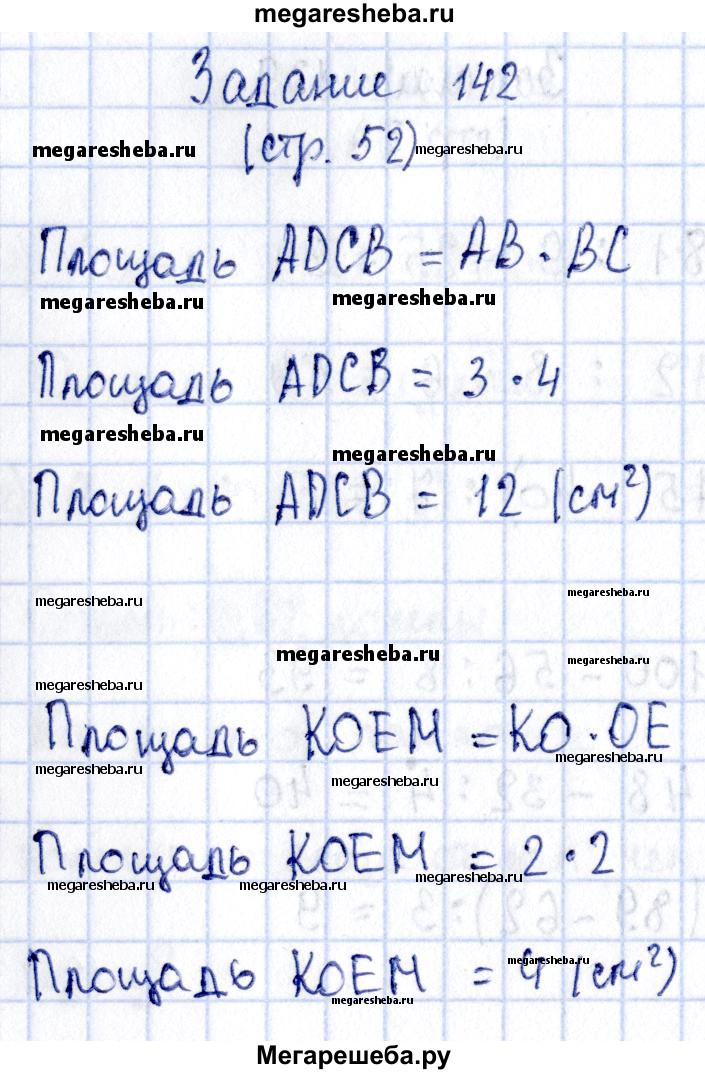 megaresheba.ru
Задание 142
megaresheba.ru (стр. 52) megaresheba.ru
Площадь ADCB = AB · BC
megaresheba.ru megaresheba.ru
Площадь ADCB = 3 · 4
megaresheba.ru megaresheba.ru
Площадь ADCB = 12 (см²)
megaresheba.ru megaresheba.ru
megaresheba.ru megaresheba.ru
megaresheba.ru
Площадь KOEM = KO · OE
megaresheba.ru megaresheba.ru
megaresheba.ru
Площадь KOEM = 2 · 2
megaresheba.ru megaresheba.ru megaresheba.ru
Площадь KOEM = 4 (см²)
megaresheba.ru
megaresheba.ru
Мегарешеба.ру